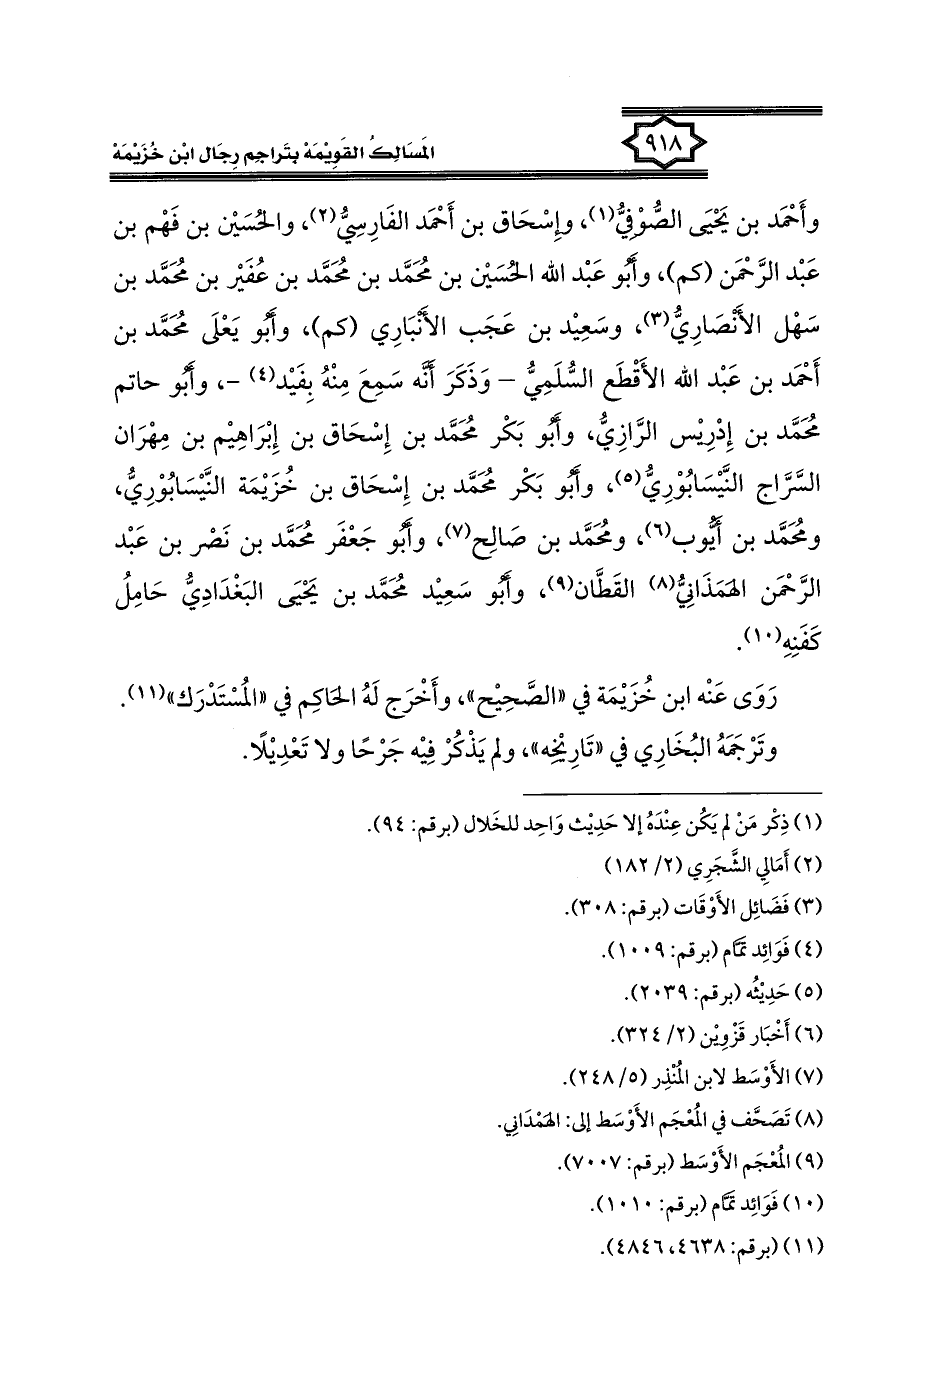 ٩١٨
المَسَالِكُ القَوِيْمَة بِتَرَاجِم رِجَال ابْن خُزَيْمَة
وأَحْمَد بن يَحْيَى الصُّوْفِيُّ(١)، وإِسْحَاق بن أَحْمَد الفَارِسِيُّ(٢)، والحُسَيْن بن فَهْم بن
عَبْد الرَّحْمَن (كم)، وأَبُو عَبْد الله الحُسَيْن بن مُحَمَّد بن مُحَمَّد بن عُفَيْر بن مُحَمَّد بن
سَهْل الأَنْصَارِيُّ(٣)، وسَعِيْد بن عَجَب الأَنْبَارِي (كم)، وأَبُو يَعْلَى مُحَمَّد بن
أَحْمَد بن عَبْد الله الأَقْطَع السُّلَمِيُّ – وَذَكَرَ أَنَّه سَمِعَ مِنْهُ بِفَيْد(٤) –، وأَبُو حاتم
مُحَمَّد بن إِدْرِيْس الرَّازِيُّ، وأَبُو بَكْر مُحَمَّد بن إِسْحَاق بن إِبْرَاهِيْم بن مِهْرَان
السَّرَّاج النَّيْسَابُوْرِيُّ(٥)، وأَبُو بَكْر مُحَمَّد بن إِسْحَاق بن خُزَيْمَة النَّيْسَابُوْرِيُّ،
ومُحَمَّد بن أَيُّوب(٦)، ومُحَمَّد بن صَالِح(٧)، وأَبُو جَعْفَر مُحَمَّد بن نَصْر بن عَبْد
الرَّحْمَن الهَمَذَانِيُّ(٨) القَطَّان(٩)، وأَبُو سَعِيْد مُحَمَّد بن يَحْيَى البَغْدَادِيُّ حَامِلُ
كَفَنِهِ(١٠).
رَوَى عَنْه ابن خُزَيْمَة في «الصَّحِيْح»، وأَخْرَج لَهُ الحَاكِم في «المُسْتَدْرَك»(١١).
وتَرْجَمَهُ البُخَارِي في «تَارِيْخِه»، ولم يَذْكُرْ فِيْه جَرْحًا ولا تَعْدِيْلًا.
(١) ذِكْر مَنْ لم يَكُن عِنْدَهُ إلا حَدِيْث وَاحِد للخَلال (برقم: ٩٤).
(٢) أَمَالِي الشَّجَرِي (٢/ ١٨٢)
(٣) فَضَائِل الأَوْقَات (برقم: ٣٠٨).
(٤) فَوَائِد تَمَّام (برقم: ١٠٠٩).
(٥) حَدِيْثُه (برقم: ٢٠٣٩).
(٦) أَخْبَار قَزْوِيْن (٢/ ٣٢٤).
(٧) الأَوْسَط لابن المُنْذِر (٥/ ٢٤٨).
(٨) تَصَحَّف في المُعْجَم الأَوْسَط إلى: الهَمْدَاني.
(٩) المُعْجَم الأَوْسَط (برقم: ٧٠٠٧).
(١٠) فَوَائِد تَمَّام (برقم: ١٠١٠).
(١١) (برقم: ٤٦٣٨، ٤٨٤٦).